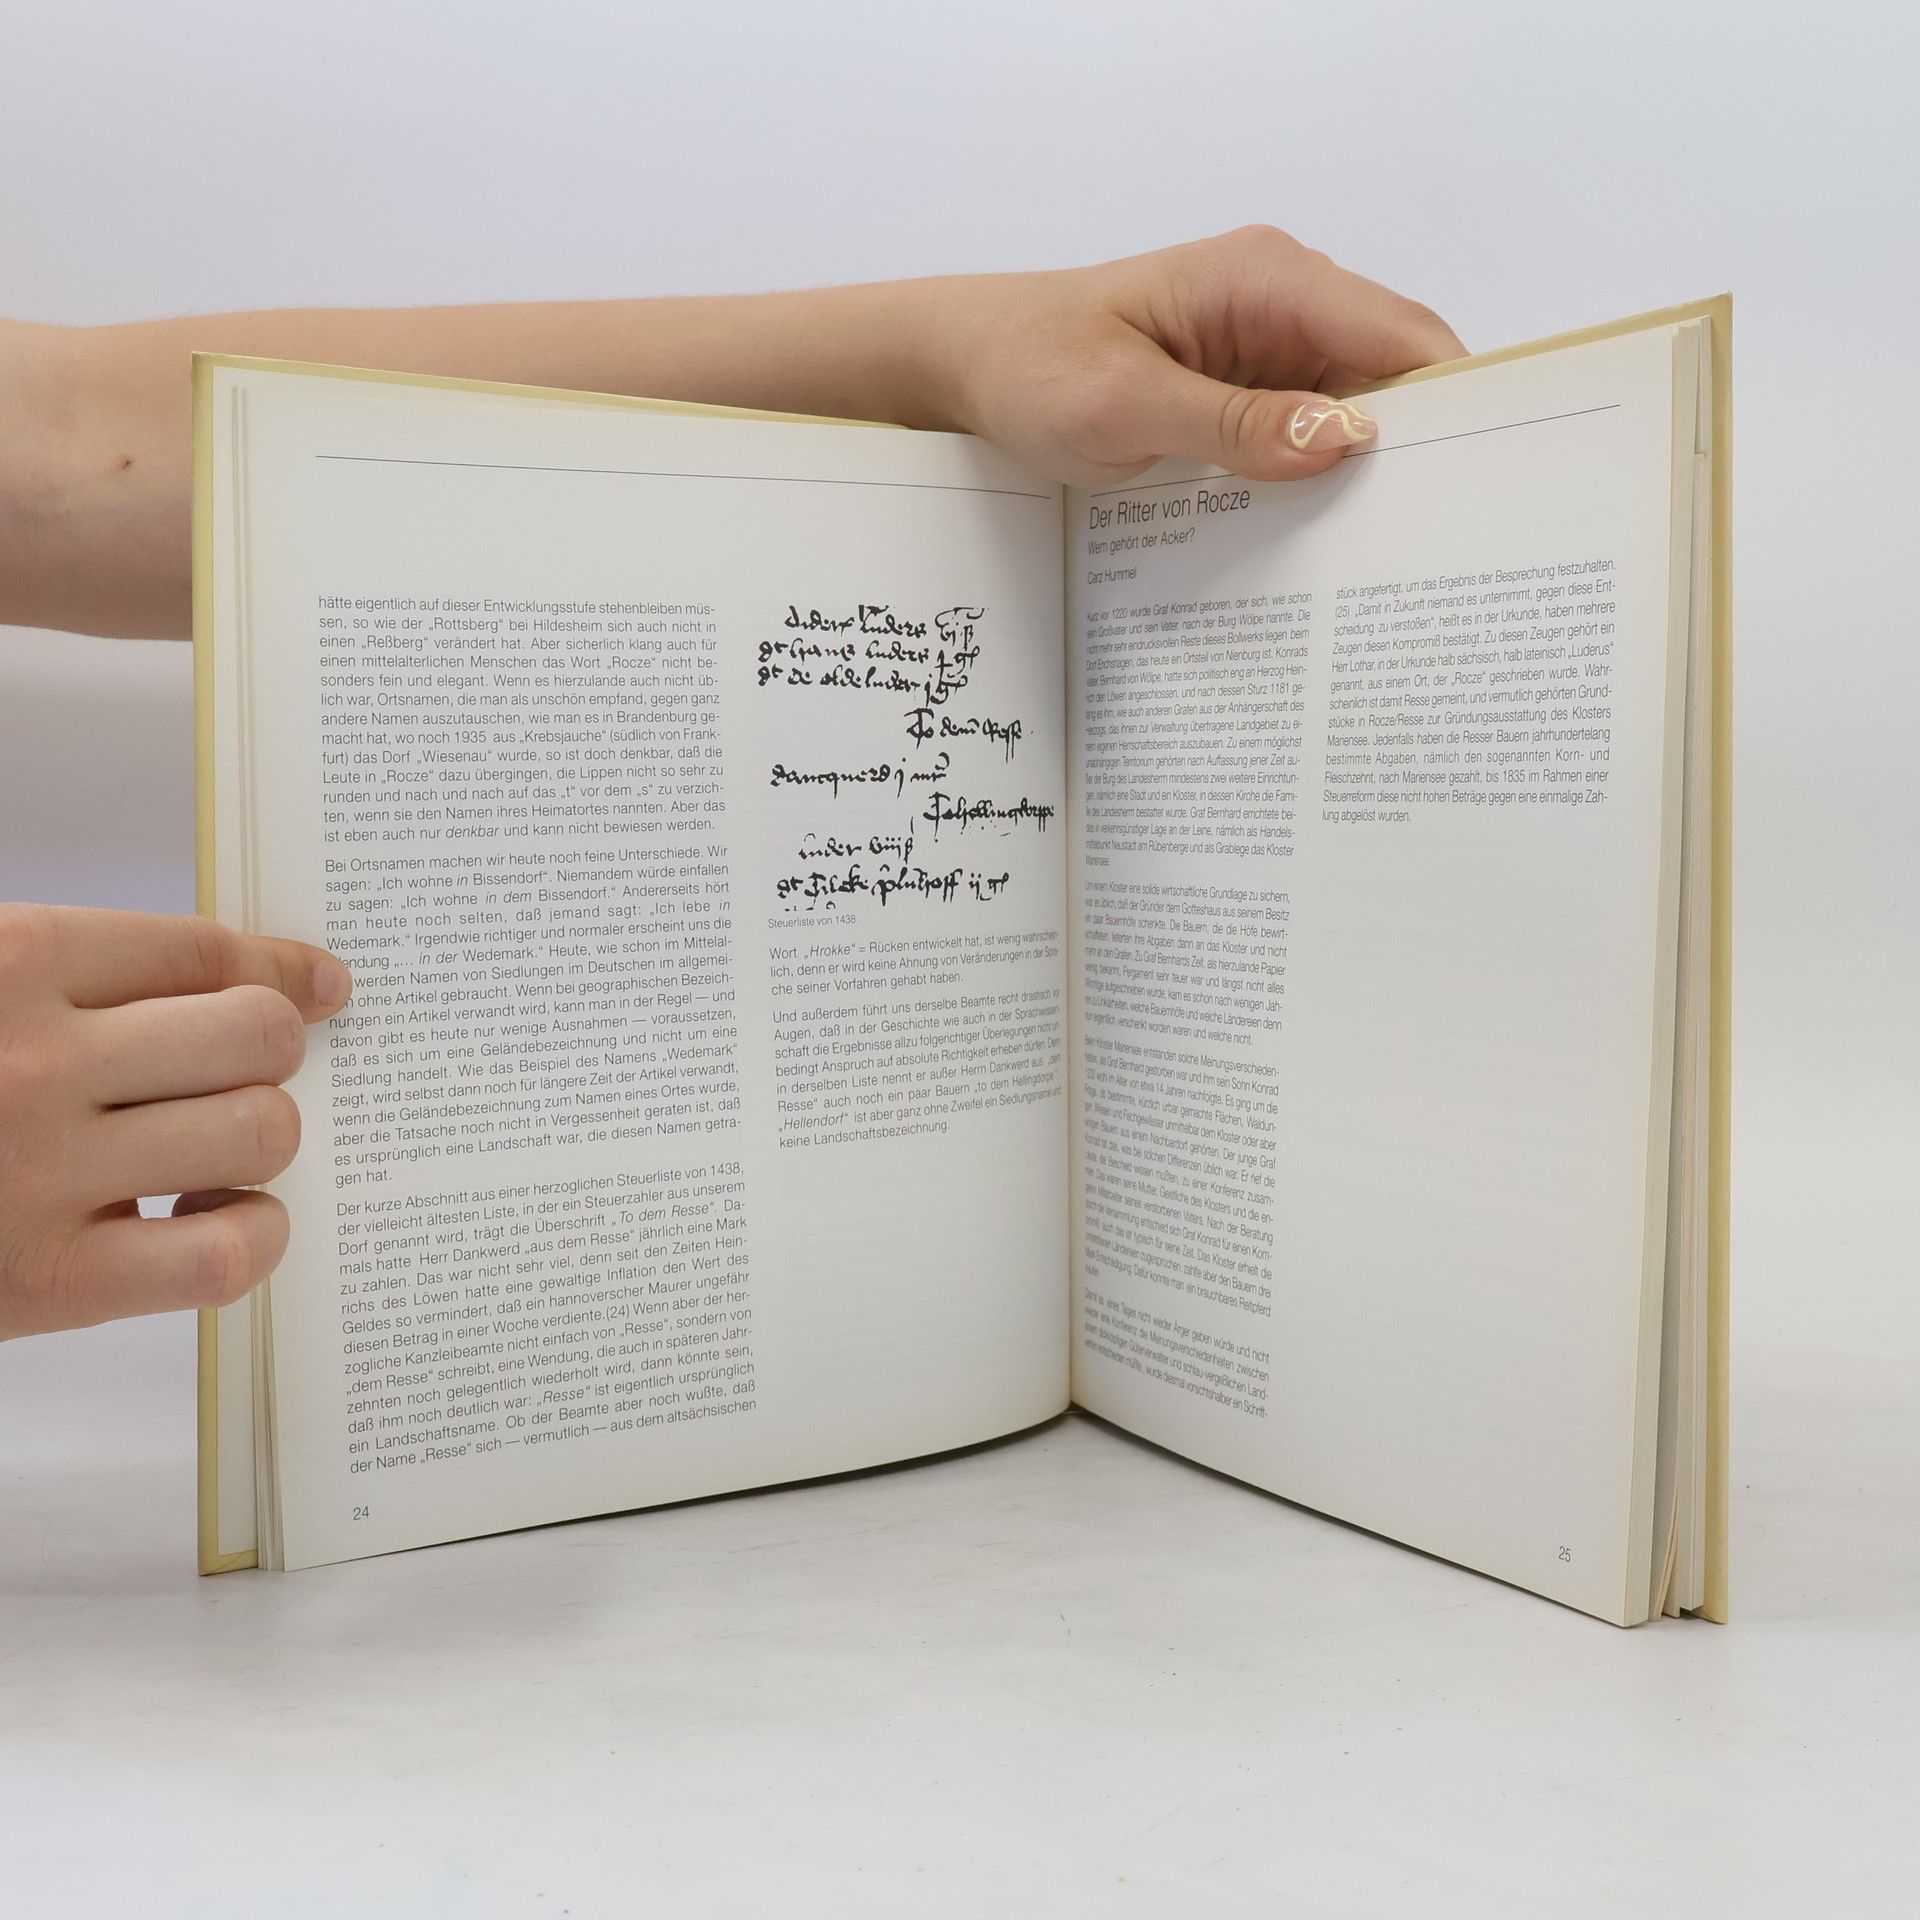 hätte eigentlich auf dieser Entwicklungsstufe stehenbleiben müs-
sen, so wie der „Rottsberg“ bei Hildesheim sich auch nicht in
einen „Reßberg“ verändert hat. Aber sicherlich klang auch für
einen mittelalterlichen Menschen das Wort „Rocze“ nicht be-
sonders fein und elegant. Wenn es hierzulande auch nicht üb-
lich war, Ortsnamen, die man als unschön empfand, gegen ganz
andere Namen auszutauschen, wie man es in Brandenburg ge-
macht hat, wo noch 1935 aus „Krebsjauche“ (südlich von Frank-
furt) das Dorf „Wiesenau“ wurde, so ist doch denkbar, daß die
Leute in „Rocze“ dazu übergingen, die Lippen nicht so sehr zu
runden und nach und nach auf das „t“ vor dem „s“ zu verzich-
ten, wenn sie den Namen ihres Heimatortes nannten. Aber das
ist eben auch nur denkbar und kann nicht bewiesen werden.
Bei Ortsnamen machen wir heute noch feine Unterschiede. Wir
sagen: „Ich wohne in Bissendorf“. Niemandem würde einfallen
zu sagen: „Ich wohne in dem Bissendorf.“ Andererseits hört
man heute noch selten, daß jemand sagt: „Ich lebe in
Wedemark.“ Irgendwie richtiger und normaler erscheint uns die
Wendung „... in der Wedemark.“ Heute, wie schon im Mittelal-
werden Namen von Siedlungen im Deutschen im allgemei-
ohne Artikel gebraucht. Wenn bei geographischen Bezeich-
nungen ein Artikel verwandt wird, kann man in der Regel — und
davon gibt es heute nur wenige Ausnahmen — voraussetzen,
daß es sich um eine Geländebezeichnung und nicht um eine
Siedlung handelt. Wie das Beispiel des Namens „Wedemark“
zeigt, wird selbst dann noch für längere Zeit der Artikel verwandt,
wenn die Geländebezeichnung zum Namen eines Ortes wurde,
aber die Tatsache noch nicht in Vergessenheit geraten ist, daß
es ursprünglich eine Landschaft war, die diesen Namen getra-
gen hat.
Der kurze Abschnitt aus einer herzoglichen Steuerliste von 1438,
der vielleicht ältesten Liste, in der ein Steuerzahler aus unserem
Dorf genannt wird, trägt die Überschrift „To dem Resse“. Da-
mals hatte Herr Dankwerd „aus dem Resse“ jährlich eine Mark
zu zahlen. Das war nicht sehr viel, denn seit den Zeiten Hein-
richs des Löwen hatte eine gewaltige Inflation den Wert des
Geldes so vermindert, daß ein hannoverscher Maurer ungefähr
diesen Betrag in einer Woche verdiente.(24) Wenn aber der her-
zogliche Kanzleibeamte nicht einfach von „Resse“, sondern von
„dem Resse“ schreibt, eine Wendung, die auch in späteren Jahr-
zehnten noch gelegentlich wiederholt wird, dann könnte sein,
daß ihm noch deutlich war: „Resse“ ist eigentlich ursprünglich
ein Landschaftsname. Ob der Beamte aber noch wußte, daß
der Name „Resse“ sich — vermutlich — aus dem altsächsischen
Steuerliste von 1438
Wort „Hrokke“ = Rücken entwickelt hat, ist wenig wahrschein-
lich, denn er wird keine Ahnung von Veränderungen in der Spra-
che seiner Vorfahren gehabt haben.
Und außerdem führt uns derselbe Beamte recht drastisch vor
Augen, daß in der Geschichte wie auch in der Sprachwissen-
schaft die Ergebnisse allzu folgerichtiger Überlegungen nicht un-
bedingt Anspruch auf absolute Richtigkeit erheben dürfen. Denn
in derselben Liste nennt er außer Herrn Dankwerd aus „dem
Resse“ auch noch ein paar Bauern „to dem Hellingdorpe“.
„Hellendorf“ ist aber ganz ohne Zweifel ein Siedlungsname und
keine Landschaftsbezeichnung.
24
Der Ritter von Rocze
Wem gehört der Acker?
Carz Hummel
Kurz vor 1220 wurde Graf Konrad geboren, der sich, wie schon
sein Großvater und sein Vater, nach der Burg Wölpe nannte. Die
nicht mehr sehr eindrucksvollen Reste dieses Bollwerks liegen beim
Dorf Erichshagen, das heute ein Ortsteil von Nienburg ist. Konrads
Vater, Bernhard von Wölpe, hatte sich politisch eng an Herzog Hein-
rich den Löwen angeschlossen, und nach dessen Sturz 1181 ge-
lang es ihm, wie auch anderen Grafen aus der Anhängerschaft des
Herzogs, das ihnen zur Verwaltung übertragene Landgebiet zu ei-
nem eigenen Herrschaftsbereich auszubauen. Zu einem möglichst
unabhängigen Territorium gehörten nach Auffassung jener Zeit au-
ßer der Burg des Landesherrn mindestens zwei weitere Einrichtun-
gen, nämlich eine Stadt und ein Kloster, in dessen Kirche die Fami-
lie des Landesherrn bestattet wurde. Graf Bernhard errichtete bei-
des in verkehrsgünstiger Lage an der Leine, nämlich als Handels-
mittelpunkt Neustadt am Rübenberge und als Grablege das Kloster
Mariensee.
Um einem Kloster eine solide wirtschaftliche Grundlage zu sichern,
war es üblich, daß der Gründer dem Gotteshaus aus seinem Besitz
ein paar Bauernhöfe schenkte. Die Bauern, die die Höfe bewirt-
schafteten, lieferten ihre Abgaben dann an das Kloster und nicht
mehr an den Grafen. Zu Graf Bernhards Zeit, als hierzulande Papier
wenig bekannt, Pergament sehr teuer war und längst nicht alles
Wichtige aufgeschrieben wurde, kam es schon nach wenigen Jah-
ren zu Unklarheiten, welche Bauernhöfe und welche Ländereien denn
nun eigentlich verschenkt worden waren und welche nicht.
Beim Kloster Mariensee entstanden solche Meinungsverschieden-
heiten, als Graf Bernhard gestorben war und ihm sein Sohn Konrad
wohl im Alter von etwa 14 Jahren nachfolgte. Es ging um die
Frage, ob bestimmte, kürzlich urbar gemachte Flächen, Waldun-
gen, Wiesen und Fischgewässer unmittelbar dem Kloster oder aber
einigen Bauern aus einem Nachbardorf gehörten. Der junge Graf
Konrad tat das, was bei solchen Differenzen üblich war. Er rief die
Leute, die Bescheid wissen mußten, zu einer Konferenz zusam-
men. Das waren seine Mutter, Geistliche des Klosters und die en-
geren Mitarbeiter seines verstorbenen Vaters. Nach der Beratung
durch die Versammlung entschied sich Graf Konrad für einen Kom-
promiß, auch das ist typisch für seine Zeit. Das Kloster erhielt die
umstrittenen Ländereien zugesprochen, zahlte aber den Bauern drei
Mark Entschädigung. Dafür konnte man ein brauchbares Reitpferd
kaufen.
Damit es eines Tages nicht wieder Ärger geben würde und nicht
wieder eine Konferenz die Meinungsverschiedenheiten zwischen
einem dickköpfigen Güterverwalter und schlau-vergeßlichen Land-
wirten entscheiden müßte, wurde diesmal vorsichtshalber ein Schrift-
stück angefertigt, um das Ergebnis der Besprechung festzuhalten.
(25) „Damit in Zukunft niemand es unternimmt, gegen diese Ent-
scheidung zu verstoßen“, heißt es in der Urkunde, haben mehrere
Zeugen diesen Kompromiß bestätigt. Zu diesen Zeugen gehört ein
Herr Lothar, in der Urkunde halb sächsisch, halb lateinisch „Luderus“
genannt, aus einem Ort, der „Rocze“ geschrieben wurde. Wahr-
scheinlich ist damit Resse gemeint, und vermutlich gehörten Grund-
stücke in Rocze/Resse zur Gründungsausstattung des Klosters
Mariensee. Jedenfalls haben die Resser Bauern jahrhundertelang
bestimmte Abgaben, nämlich den sogenannten Korn- und
Fleischzehnt, nach Mariensee gezahlt, bis 1835 im Rahmen einer
Steuerreform diese nicht hohen Beträge gegen eine einmalige Zah-
lung abgelöst wurden.
25